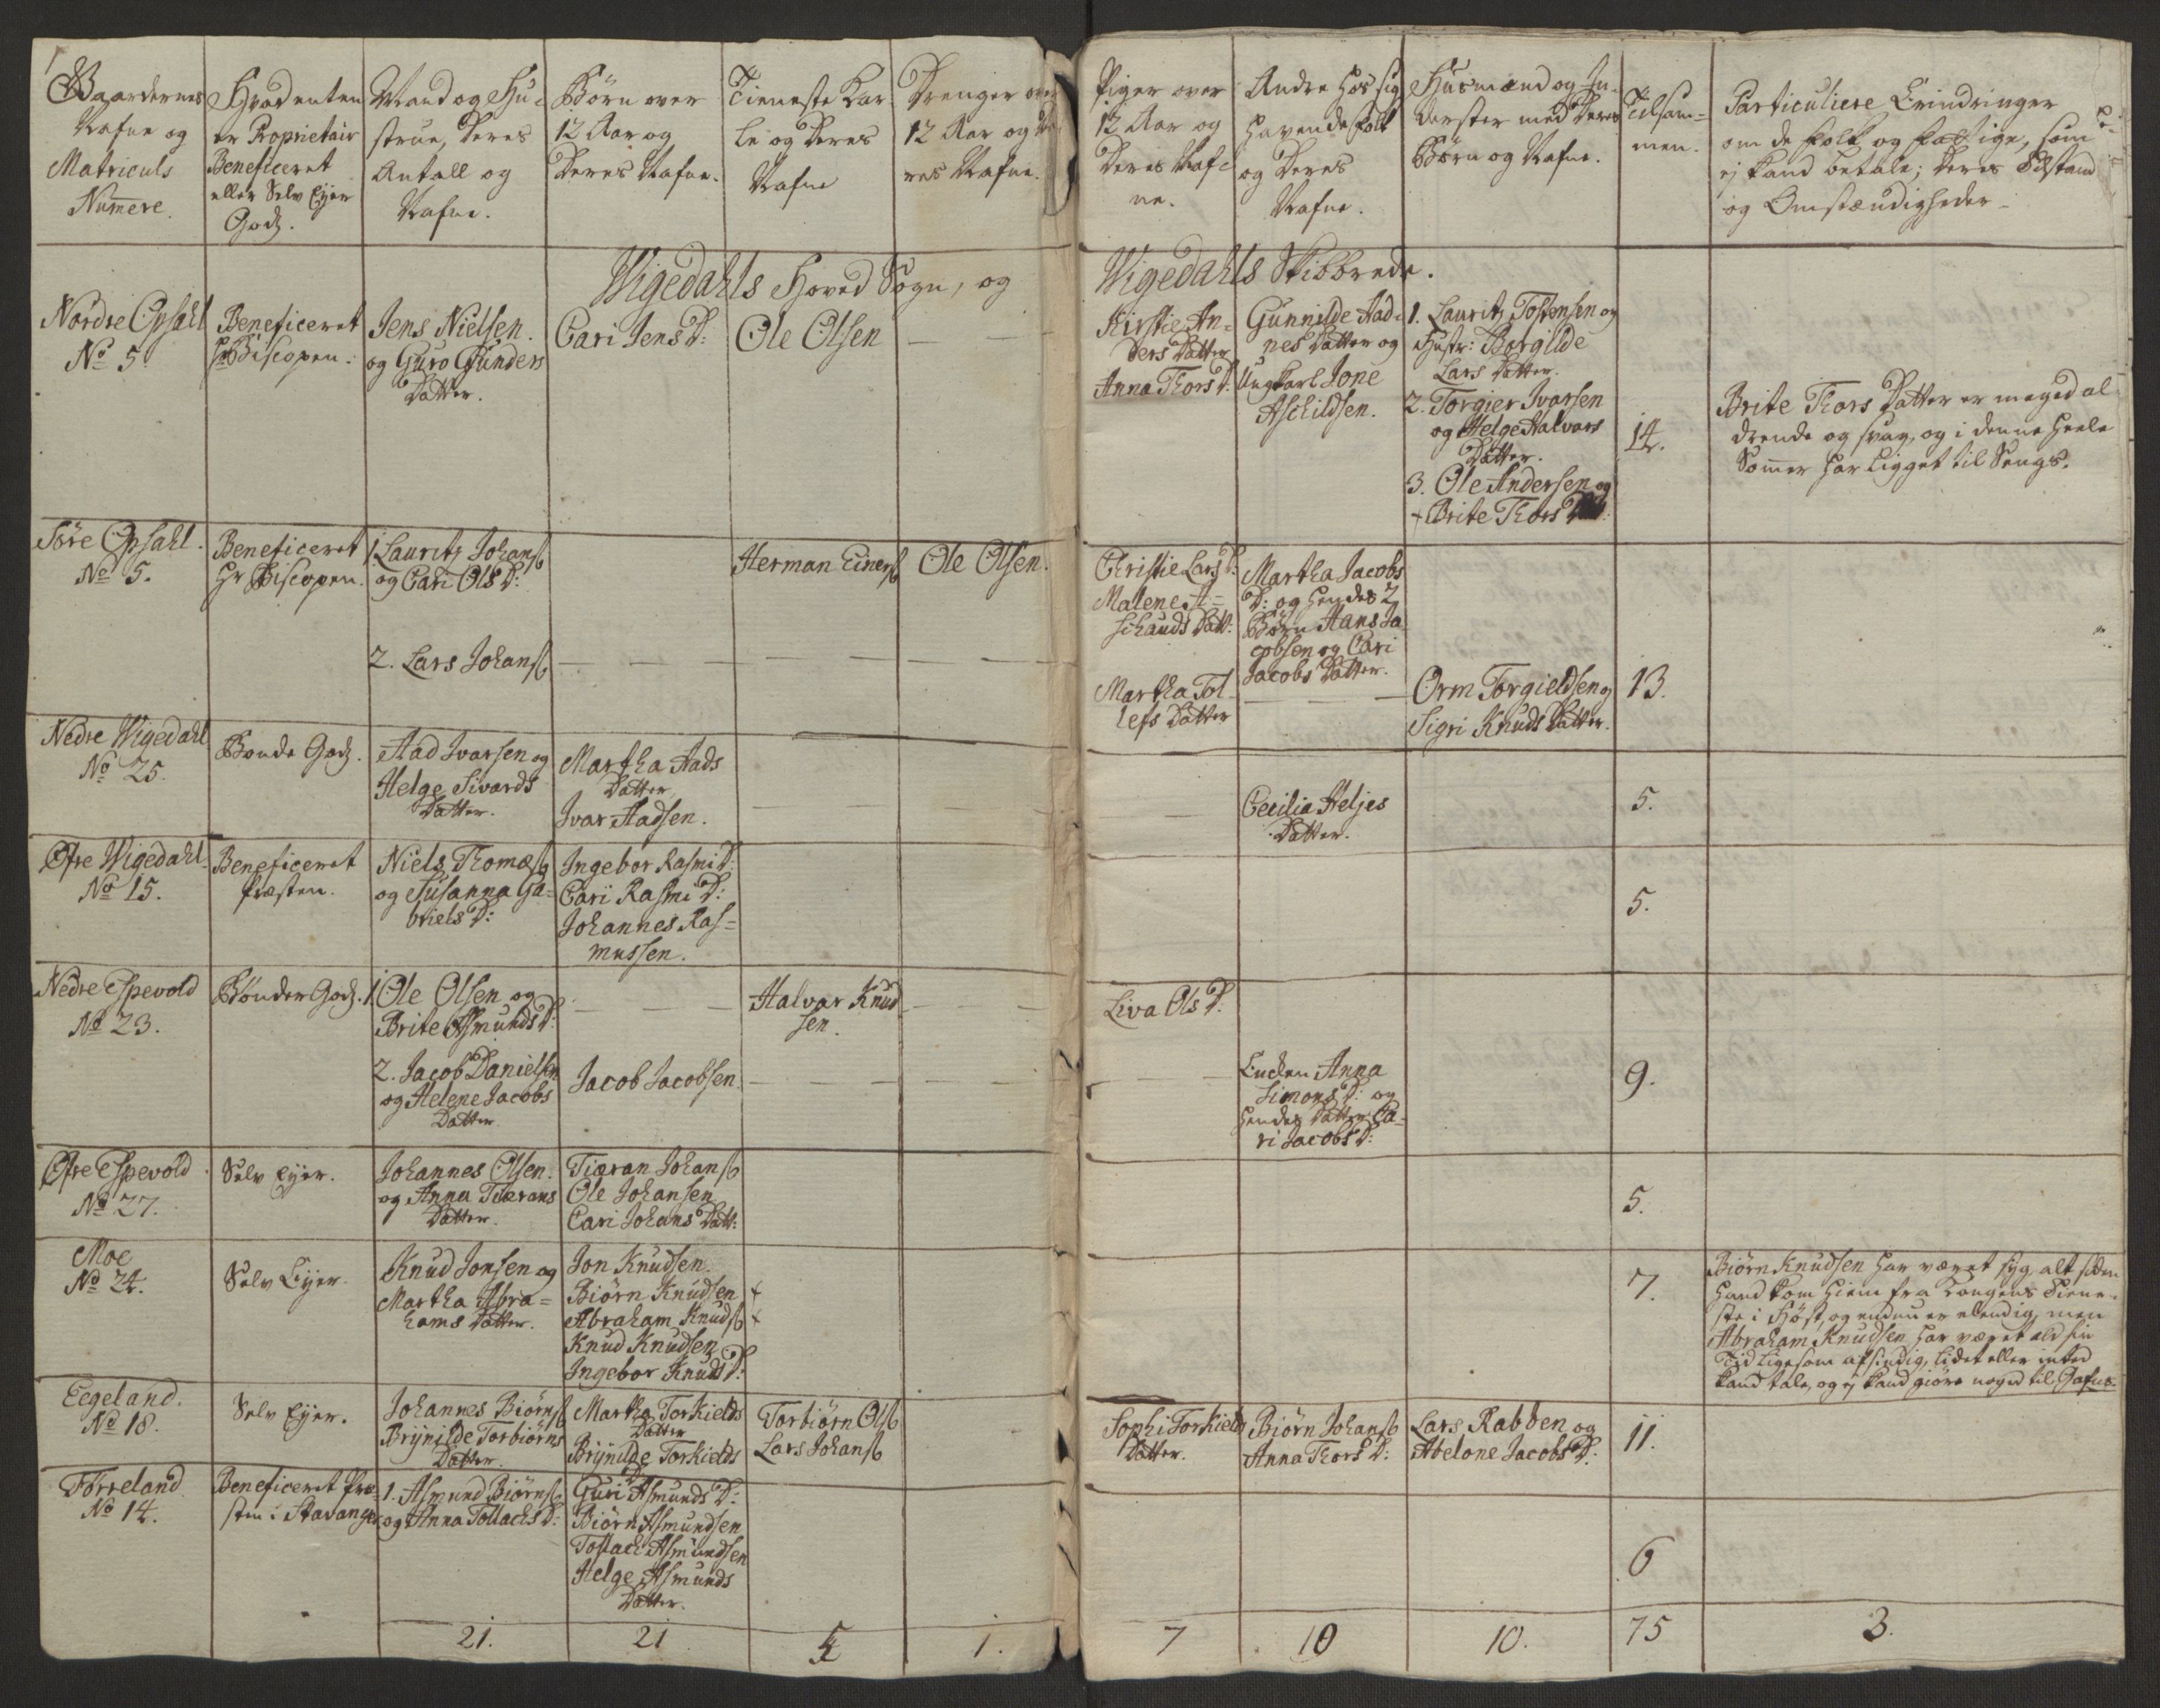 Gaardernes
Nafne og
Matriculs
Numere.
Hvad enten
er Proprietair
Beneficeret
eller Selv Eyer
Godz.
Mand og Hu-
strue, deres
Antall og
Nafne.
Börn over
12 Aar og
Deres Nafne.
Tieneste Kar-
le og Deres
Nafne
Drenger over
12 Aar og De
res Nafne.
Piger over
12 Aar og
Deres Naf-
ne.
Andre hos sig
havende folk
og Deres
Nafne.
Husmænd og In-
derster med Deres
Börn og Nafne.
Tilsam-
men.
Particuliere Erindringer
om de folk og fattige, som
ej kand betale; deres Tilstand
og Omstændigheder
Wigedahls Hoved Sogn, og
Wigedahls Skibbrede.
Nordre Opsahl
No 5.
Beneficeret
Hr Biscopen.
Jens Nielsen
og Guro Gunders
Datter.
Cari Jens D:
Ole Olsen
Kirstie An-
ders Datter
Anna Thors D:
Gunnilde Aad-
nes Datter og
Ungkarl Jone
Aschildsen.
1. Lauritz Tostensen og
Hustr: Borgilde
Lars Datter.
2. Torgier Ivarsen
og Helge Halvars
Datter.
3. Ole Andersen og
+ Brite Thors Dat:
14.
Brite Thors Datter er meged al
drende og svag, og i denne heele
Sommer har ligget til Sengs.
Söre Opsahl.
No 5.
Beneficeret
Hr Biscopen.
1. Lauritz Johans
og Cari Ols D:
2. Lars Johans
Herman Einers
Ole Olsen.
Christie Lars D:
Malene A-
schauds Datt:
Martha Tol-
lefs Datter
Martha Jacobs
D: og hendes 2
Börn Hans Ja
cobsen og Cari
Jacobs Datter.
Orm Torgieldsen og
Sigri Knuds Datter.
13.
Nedre Wigedahl
No 25.
Bonde Godz.
Aad Ivarsen og
Helge Sivards
Datter.
Martha Aads
Datter
Ivar Aadsen.
Cecilia Heljes
Datter.
5.
Öfre Wigedahl
No 15.
Beneficeret
Præsten.
Niels Thomæs
og Susanna Ga-
briels D:
Ingebor Rasmi D:
Cari Rasmi D:
Johannes Ras-
mussen.
5.
Nedre Espevold
No 23.
Bönder Godz.
1. Ole Olsen og
Brite Asmunds D:
2. Jacob Danielsen
og Helene Jacobs
Datter
Jacob Jacobsen
Halvar Knud
sen.
Liva Ols D:
Encken Anna
Simons D: og
hendes Datter Ca-
ri Jacobs D:
9.
Öfre Espevold
No 27.
Selv Eyer.
Johannes Olsen.
og Anna Tiærans
Datter.
Tiæran Johans
Ole Johansen
Cari Johans Datt:
5.
Moe
No 24.
Selv Eyer.
Knud Jonsen og
Martha Abra-
hams Datter.
Jon Knudsen.
Biörn Knudsen +
Abraham Knuds +
Knud Knudsen
Ingebor Knuds D:
7.
Biörn Knudsen har været syg alt siden
hand kom hiem fra Kongens Tiene-
ste i Höst, og endnu er elendig, men
Abraham Knudsen har været ald sin
Tid ligesom afsindig, lidet eller inted
kand tale, og ej kand giöre noged til Gafns
Eegeland.
No 18.
Selv Eyer.
Johannes Biörns
Brÿnilde Torbiörns
Datter.
Martha Torkields
Datter
Brÿnilde Torkields
D
Torbiörn Ols
Lars Johans
Sophi Torkields
Datter.
Biörn Johans
Anna Thors D:
Lars Rabben og
Abelone Jacobs D:
11.
Förreland
No 14.
Beneficeret Præ-
sten i Stavanger
1. Asmund Biörns
og Anna Tollachs D:
Guri Asmunds D:
Biörn Asmundsen
Tollach Asmundsen
Helge Asmunds
Datter.
6
21.
21
5
1.
7
10
10.
75
3.